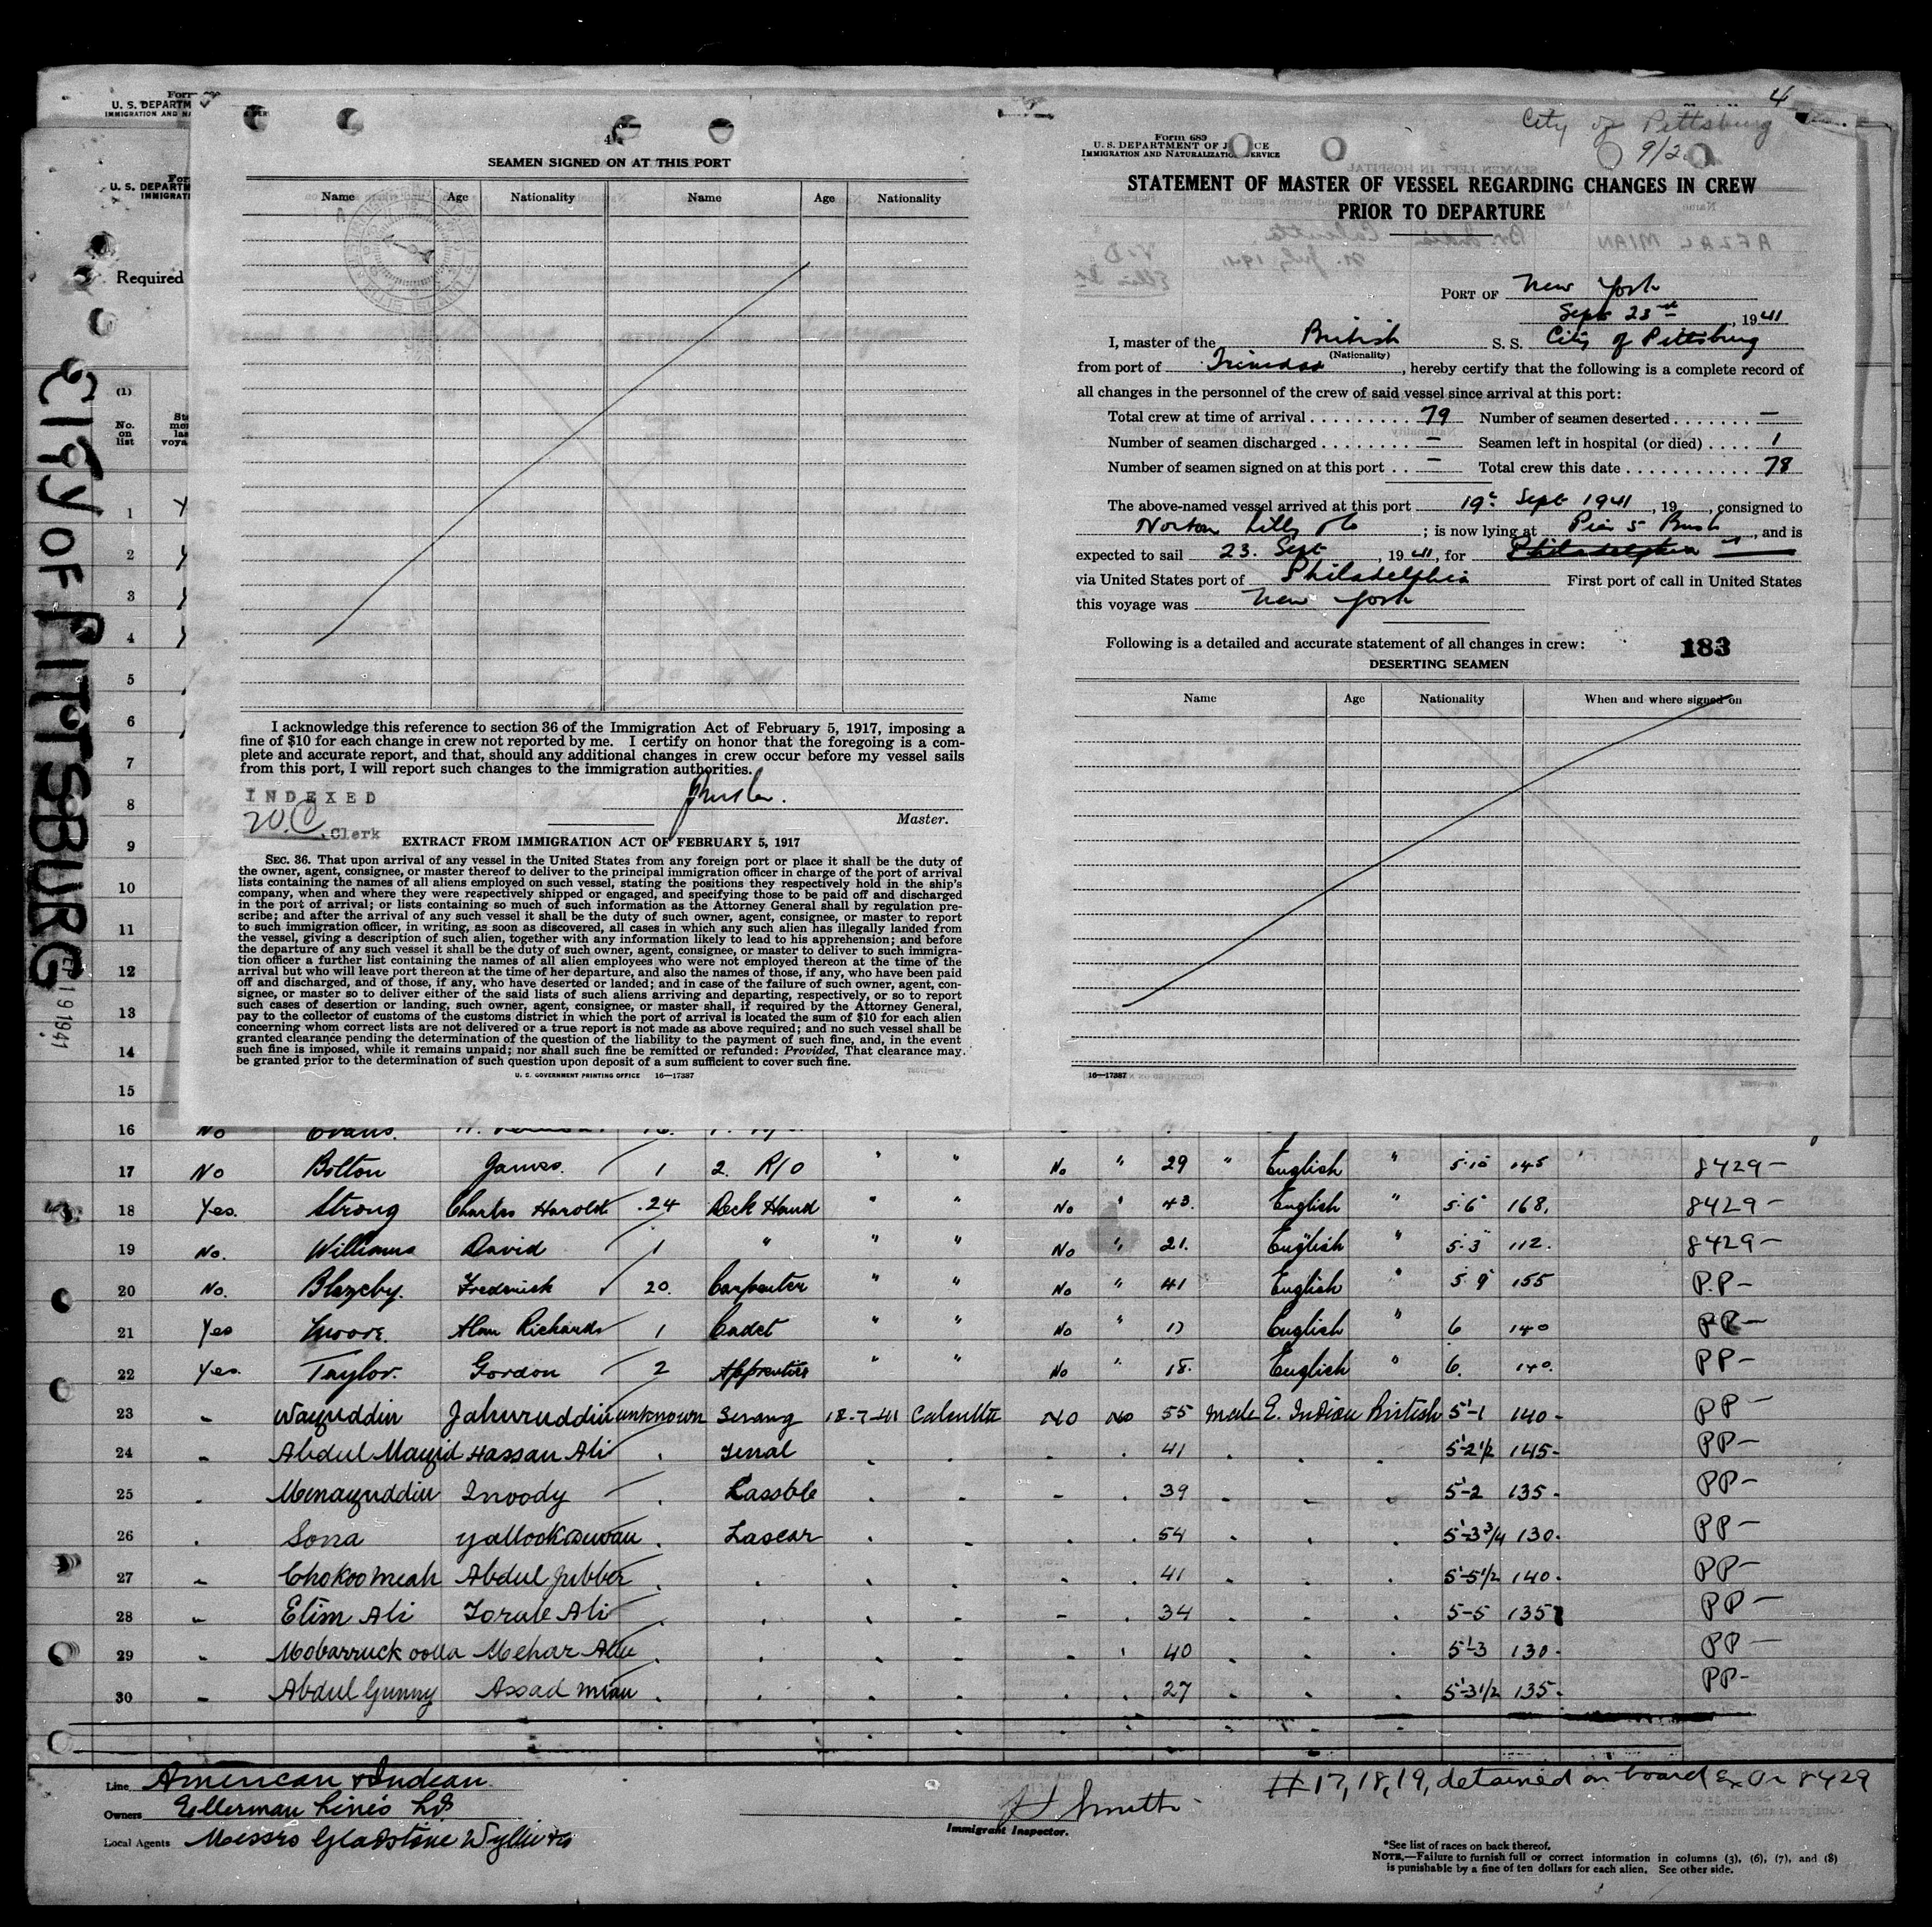 4
City of Pittsburg
9/2
Form 689
U. S. DEPARTM
IMMIGRATION AND NA
U. S. DEPARTM
IMMIGRATI
Required
CITY OF PITTSBURG
SEP 19 1941
(1)
No. on list
4
SEAMEN SIGNED ON AT THIS PORT
Name Age Nationality Name Age Nationality
I acknowledge this reference to section 36 of the Immigration Act of February 5, 1917, imposing a
fine of $10 for each change in crew not reported by me. I certify on honor that the foregoing is a com-
plete and accurate report, and that, should any additional changes in crew occur before my vessel sails
from this port, I will report such changes to the immigration authorities.
INDEXED
Clerk
Master.
EXTRACT FROM IMMIGRATION ACT OF FEBRUARY 5, 1917
SEC. 36. That upon arrival of any vessel in the United States from any foreign port or place it shall be the duty of
the owner, agent, consignee, or master thereof to deliver to the principal immigration officer in charge of the port of arrival
lists containing the names of all aliens employed on such vessel, stating the positions they respectively hold in the ship's
company, when and where they were respectively shipped or engaged, and specifying those to be paid off and discharged
in the port of arrival; or lists containing so much of such information as the Attorney General shall by regulation pre-
scribe; and after the arrival of any such vessel it shall be the duty of such owner, agent, consignee, or master to report
to such immigration officer, in writing, as soon as discovered, all cases in which any such alien has illegally landed from
the vessel, giving a description of such alien, together with any information likely to lead to his apprehension; and before
the departure of any such vessel it shall be the duty of such owner, agent, consignee, or master to deliver to such immigra-
tion officer a further list containing the names of all alien employees who were not employed thereon at the time of the
arrival but who will leave port thereon at the time of her departure, and also the names of those, if any, who have been paid
off and discharged, and of those, if any, who have deserted or landed; and in case of the failure of such owner, agent, con-
signee, or master so to deliver either of the said lists of such aliens arriving and departing, respectively, or so to report
such cases of desertion or landing, such owner, agent, consignee, or master shall, if required by the Attorney General,
pay to the collector of customs of the customs district in which the port of arrival is located the sum of $10 for each alien
concerning whom correct lists are not delivered or a true report is not made as above required; and no such vessel shall be
granted clearance pending the determination of the question of the liability to the payment of such fine, and, in the event
such fine is imposed, while it remains unpaid; nor shall such fine be remitted or refunded: Provided, That clearance may
be granted prior to the determination of such question upon deposit of a sum sufficient to cover such fine.
U. S. GOVERNMENT PRINTING OFFICE 16—17387
Form 689
U. S. DEPARTMENT OF JUSTICE
IMMIGRATION AND NATURALIZATION SERVICE
STATEMENT OF MASTER OF VESSEL REGARDING CHANGES IN CREW
PRIOR TO DEPARTURE
PORT OF New York
Sept 23rd, 1941
I, master of the British S. S. City of Pittsburg
(Nationality)
from port of Trinidad, hereby certify that the following is a complete record of
all changes in the personnel of the crew of said vessel since arrival at this port:
Total crew at time of arrival 79 Number of seamen deserted —
Number of seamen discharged — Seamen left in hospital (or died) 1
Number of seamen signed on at this port — Total crew this date 78
The above-named vessel arrived at this port 19th Sept 1941, 19 , consigned to
Norton Lilly & Co ; is now lying at Pier 5 Bush, and is
expected to sail 23. Sept, 1941, for Philadelphia
via United States port of Philadelphia First port of call in United States
this voyage was New York
Following is a detailed and accurate statement of all changes in crew: 183
DESERTING SEAMEN
Name Age Nationality When and where signed on
16—17387
1
2
3
4
5
6
7
8
9
10
11
12
13
14
15
16 No Evans.
17 No Bolton James. 1 2. R/O " " No " 29 " English " 5.10 145 8429 –
18 Yes. Strong Charles Harold 24 Deck Hand " " No " 43. English " 5.6 168. 8429 –
19 No. Williams David 1 " " " No " 21. English " 5.3 112. 8429 –
20 No. Blazeby. Frederick 20. Carpenter " " No " 41 English " 5.9 155 P.P –
21 Yes Moore. Alan Richard 1 Cadet " " No " 17 English " 6 140 PP –
22 Yes. Taylor. Gordon 2 Apprentice " " No " 18. English " 6. 140. PP –
23 " Wayuddin Jahuruddin unknown Serang 18-7-41 Calcutta No No 55 male E. Indian British 5'-1 140 - PP –
24 " Abdul Mayid Hassan Ali Tindal 41 5'-2 1/2 145 - PP –
25 Menayuddin Inoody Cassble 39 5-2 135 - PP –
26 Sona Yallook Dewan Lascar 54 5'-3 3/4 130. PP –
27 " Chokoo meah Abdul Jubber 41 5'-5 1/2 140. PP –
28 " Elim Ali Torabe Ali 34 5-5 135 PP –
29 " Mobarruck oolla Mehar Ally 40 5'-3 130. PP –
30 " Abdul Gunny Assad mian 27 5'-3 1/2 135. PP –
Line American & Indian
Owners Ellerman Lines Ld
Local Agents Messrs Gladstone Wyllie & Co
Smith
Immigrant Inspector.
# 17, 18, 19, detained on board Ex Or 8429
*See list of races on back thereof.
NOTE.—Failure to furnish full or correct information in columns (3), (6), (7), and (8)
is punishable by a fine of ten dollars for each alien. See other side.